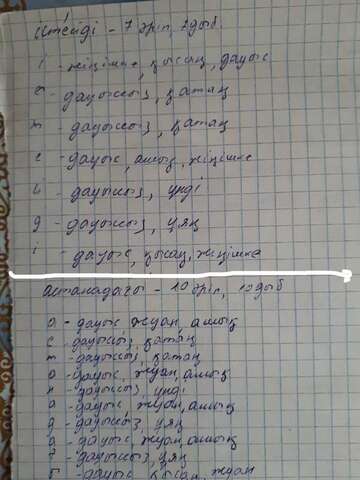 істейді - 7 әріп, 7 дыб.
і - жіңішке, қысаң, дауыс
с - дауыссыз, қатаң
т - дауыссыз, қатаң
е - дауыс, ашық, жіңішке
й - дауыссыз, үнді
д - дауыссыз, ұяң
і - дауыс, қысаң, жіңішке
астанадағы - 10 әріп, 10 дыб
а - дауыс, жуан, ашық
с - дауыссыз, қатаң
т - дауыссыз, қатаң
а - дауыс, жуан, ашық
н - дауыссыз, үнді
а - дауыс, жуан, ашық
д - дауыссыз, ұяң
а - дауыс, жуан, ашық
ғ - дауыссыз, ұяң
ы - дауыс, қысаң, жуан